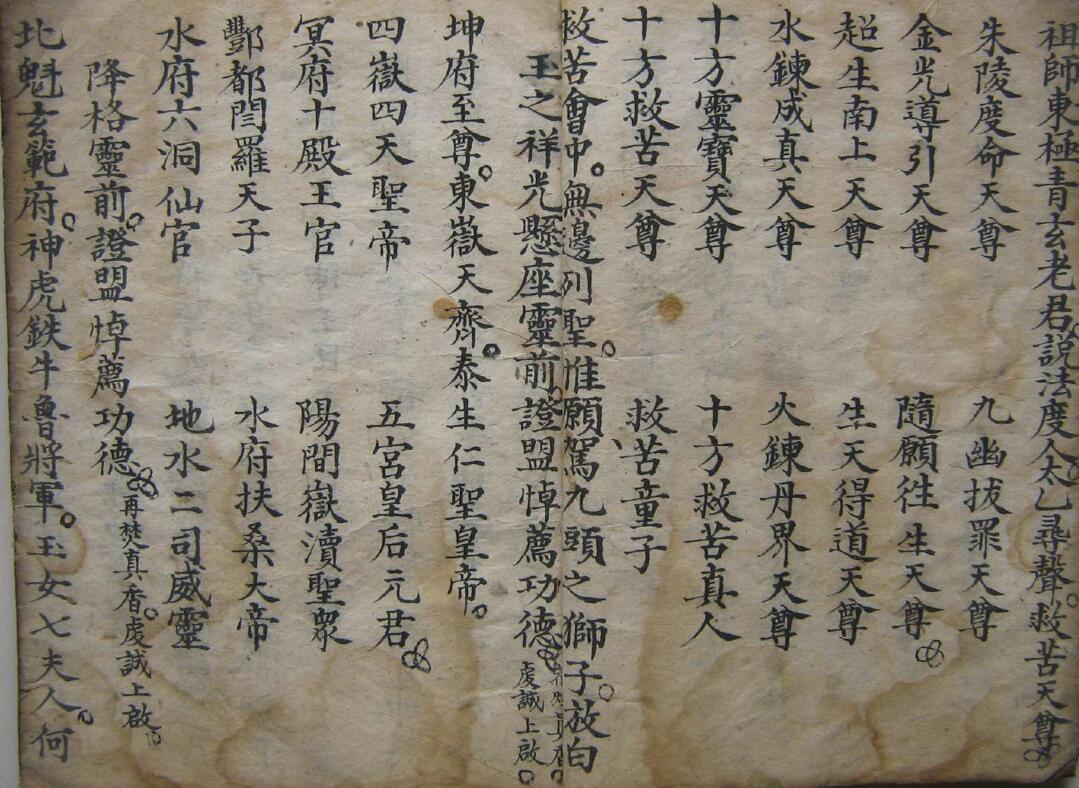 祖師東極青玄老君。説法度人太乙尋聲。救苦天尊
朱陵度命天尊　九幽拔罪天尊
金光導引天尊　隨願徃生天尊
超生南上天尊　生天得道天尊
水鍊成真天尊　火鍊丹界天尊
十方靈寶天尊　十方救苦真人
十方救苦天尊　救苦童子
救苦會中。無邊列聖。惟願駕九頭之獅子。放白
玉之祥光懸座靈前證盟悼薦功德 虔誠上啟。
坤府至尊。東嶽天齊。泰生仁聖皇帝。
四嶽四天聖帝　五宮皇后元君
冥府十殿王官　陽間嶽瀆聖眾
酆都閆羅天子　水府扶桑大帝
水府六洞仙官　地水二司威靈
降格靈前。證盟悼薦功德 再焚真香。虔誠上啟。
北魁玄範府。神虎鉄牛魯將軍。玉女七夫人。何